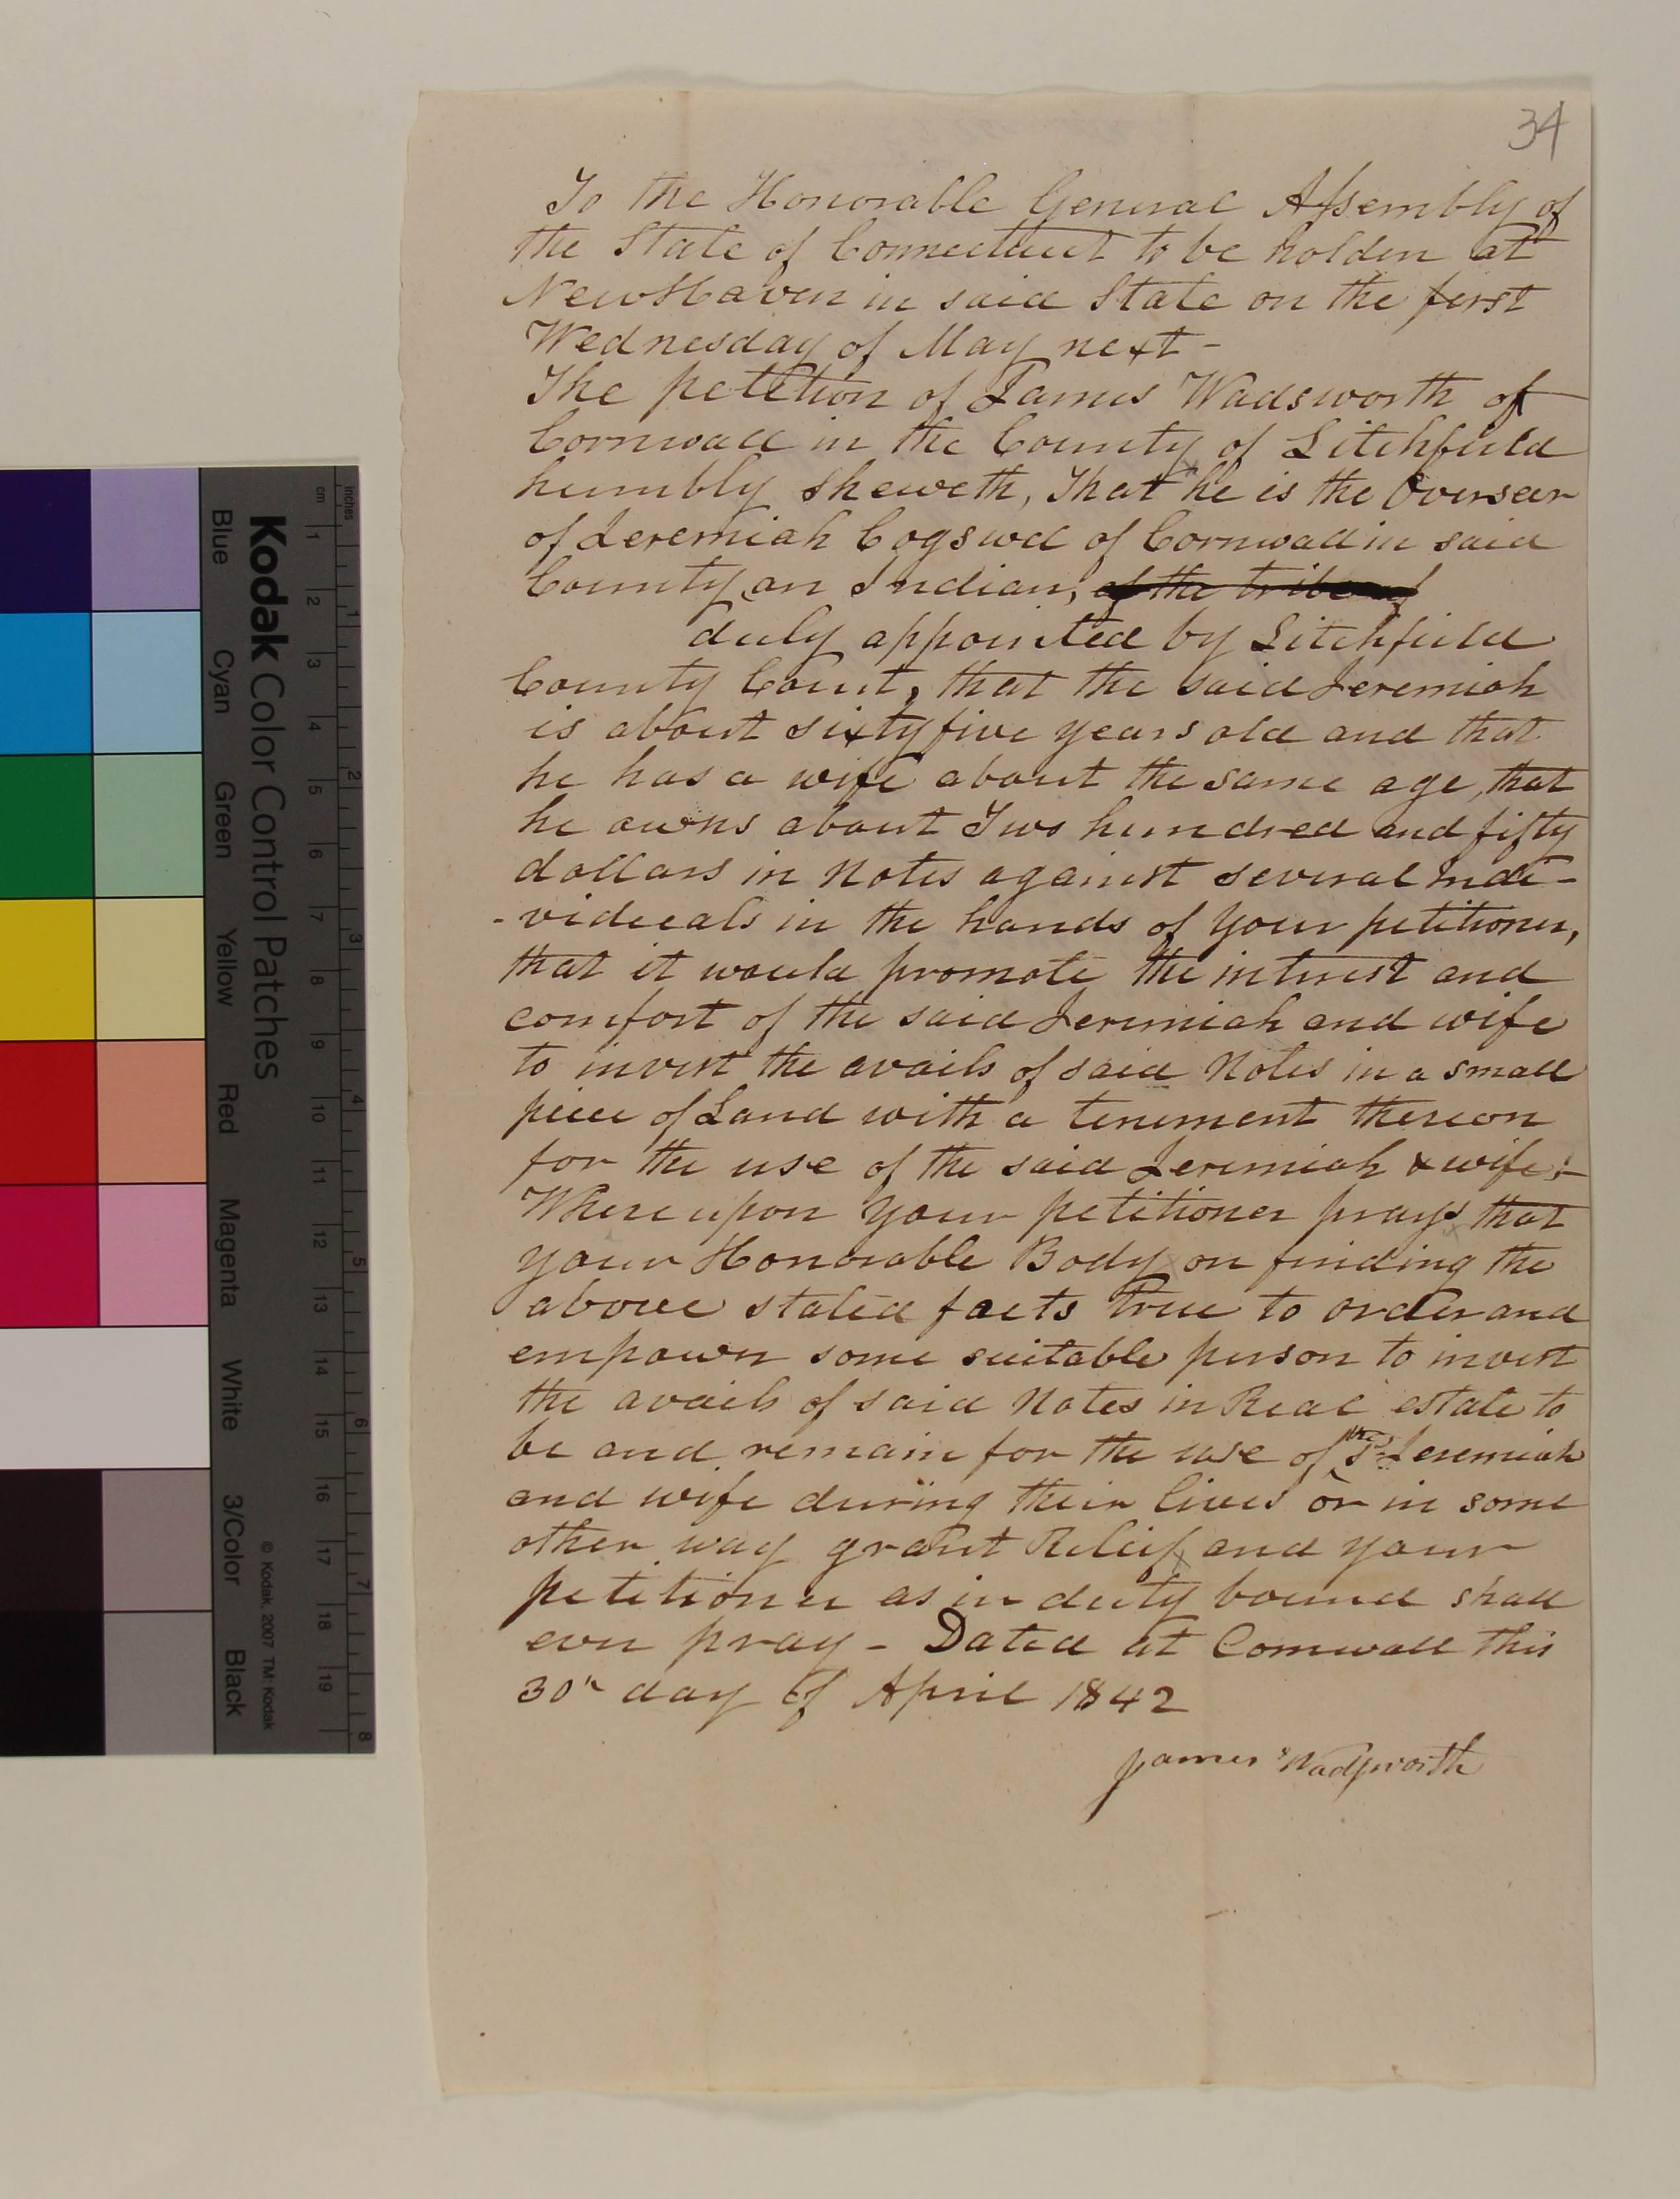 34
To the Honorable General Assembly of
the State of Connecticut to be holden at
New Haven in said State on the first
Wednesday of May next -
The petition of James Wadsworth of
Cornwall in the County of Litchfield
humbly sheweth, That he is the Overseer
of Jeremiah Cogswell of Cornwall in said
County, an Indian, of the tribe of
duly appointed by Litchfield
County Court, that the said Jeremiah
is about sixty five years old and that
he has a wife about the same age, that
he owns about Two hundred and fifty
dollars in Notes against several indi-
-viduals in the hands of your petitioner,
that it would promote the interest and
comfort of the said Jeremiah and wife
to invest the avails of said Notes in a small
piece of Land with a tenement thereon
for the use of the said Jeremiah & wife;-
Whereupon your petitioner prays that
your Honorable Body on finding the
above stated facts true to order and
empower some suitable person to invest
the avails of said Notes in Real estate to
be and remain for the use of the sd Jeremiah
and wife during their lives or in some
other way grant Relief and your
petitioner as in duty bound shall
ever pray - Dated at Cornwall this
30th day of April 1842
James Wadsworth
inches
cm
1 2 3 4 5 6 7 8
1 2 3 4 5 6 7 8 9 10 11 12 13 14 15 16 17 18 19
Kodak Color Control Patches
© Kodak, 2007 TM: Kodak
Blue Cyan Green Yellow Red Magenta White 3/Color Black